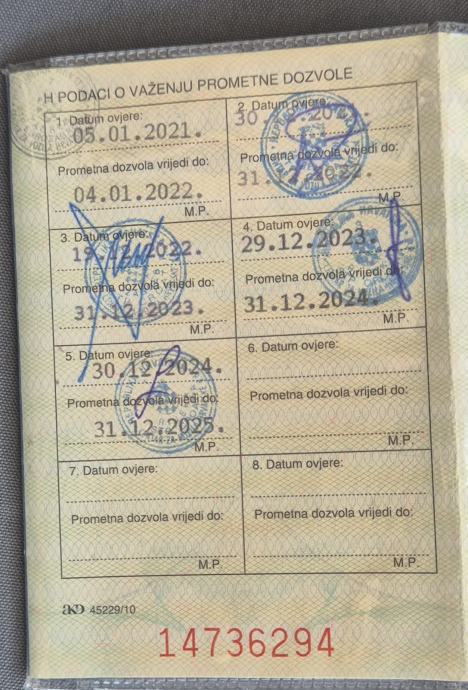 H PODACI O VAŽENJU PROMETNE DOZVOLE
1. Datum ovjere:
05.01.2021.
Prometna dozvola vrijedi do:
04.01.2022.
M.P.
2. Datum ovjere:
30.
Prometna dozvola vrijedi do:
31.
M.P.
3. Datum ovjere:
2022.
Prometna dozvola vrijedi do:
31.12.2023.
M.P.
4. Datum ovjere:
29.12.2023.
Prometna dozvola vrijedi do:
31.12.2024.
M.P.
5. Datum ovjere:
30.12.2024.
Prometna dozvola vrijedi do:
31.12.2025.
M.P.
6. Datum ovjere:
Prometna dozvola vrijedi do:
M.P.
7. Datum ovjere:
Prometna dozvola vrijedi do:
M.P.
8. Datum ovjere:
Prometna dozvola vrijedi do:
M.P.
AKD 45229/10
14736294